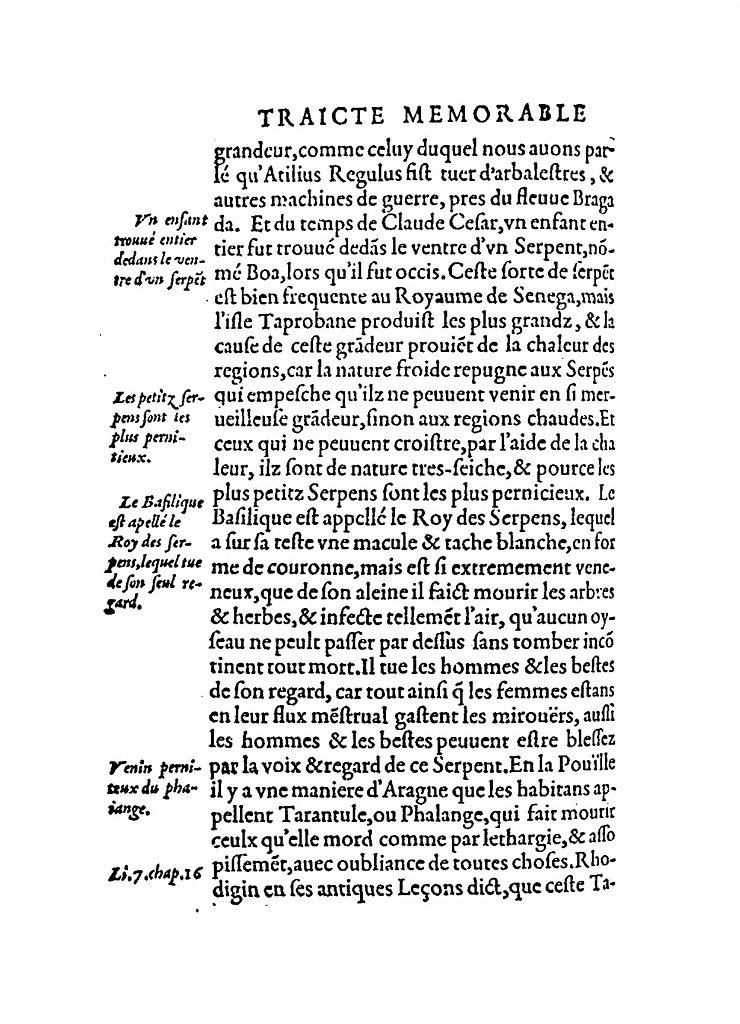 TRAICTE MEMORABLE
grandeur,comme celuy duquel nous auons par-
lé qu'Atilius Regulus fiſt tuer d'arbaleſtres, &
autres machines de guerre, pres du fleuue Braga
da. Et du temps de Claude Ceſar,vn enfant en-
tier fut trouué dedãs le ventre d'vn Serpent,nõ-
mé Boa,lors qu'il fut occis.Ceſte ſorte de ſerpẽt
eſt bien frequente au Royaume de Senega,mais
l'iſle Taprobane produiſt les plus grandz, & la
cauſe de ceſte grãdeur prouiẽt de la chaleur des
regions,car la nature froide repugne aux Serpẽs
qui empeſche qu'ilz ne peuuent venir en ſi mer-
ueilleuſe grãdeur,ſinon aux regions chaudes.Et
ceux qui ne peuuent croiſtre,par l'aide de la cha
leur, ilz ſont de nature tres-ſeiche,& pource les
plus petitz Serpens ſont les plus pernicieux. Le
Baſilique eſt appellé le Roy des Serpens, lequel
a ſur ſa teſte vne macule & tache blanche,en for
me de couronne,mais eſt ſi extremement vene-
neux,que de ſon aleine il faict mourir les arbres
& herbes,& infecte tellemẽt l'air, qu'aucun oy-
ſeau ne peult paſſer par deſſus ſans tomber incõ
tinent tout mort.Il tue les hommes & les beſtes
de ſon regard, car tout ainſi q̃ les femmes eſtans
en leur flux mẽſtrual gaſtent les mirouërs, auſſi
les hommes & les beſtes peuuent eſtre bleſſez
par la voix & regard de ce Serpent.En la Pouïlle
il y a vne maniere d'Aragne que les habitans ap-
pellent Tarantule,ou Phalange,qui fait mourir
ceulx qu'elle mord comme par lethargie,& aſſo
piſſemẽt,auec oubliance de toutes choſes.Rho-
digin en ſes antiques Leçons dict,que ceſte Ta-
Vn enfant
trouué entier
dedans le ven-
tre d'vn ſerpẽt
Les petitz ſer-
pens ſont les
plus perni-
tieux.
Le Baſilique
eſt apellé le
Roy des ſer-
pens,lequel tue
de ſon ſeul re-
gard.
Venin perni-
tieux du pha-
lange.
Li.7.chap.16